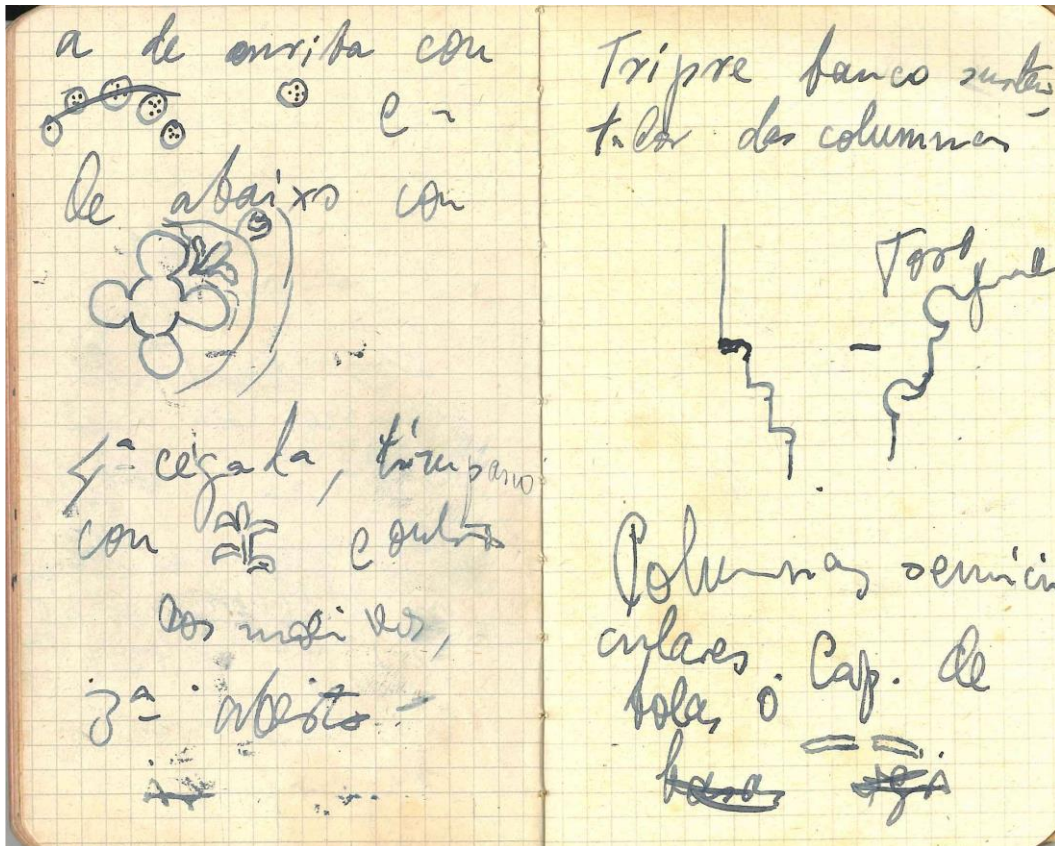 a de enriba con
e
de abaixo con
4ª cega la, tímpano
con e outros
dos motivos,
3ª aberto
Tripre banco susten
tador das columnas
Toro
Columnas semicir
culares. Cap. de
bolas ó